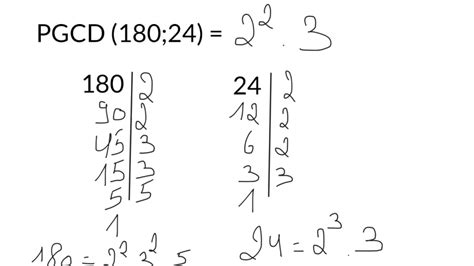 PGCD (180;24) = 2² . 3
180 | 2
90 | 2
45 | 3
15 | 3
5 | 5
1
24 | 2
12 | 2
6 | 2
3 | 3
1
180 = 2² . 3² . 5
24 = 2³ . 3